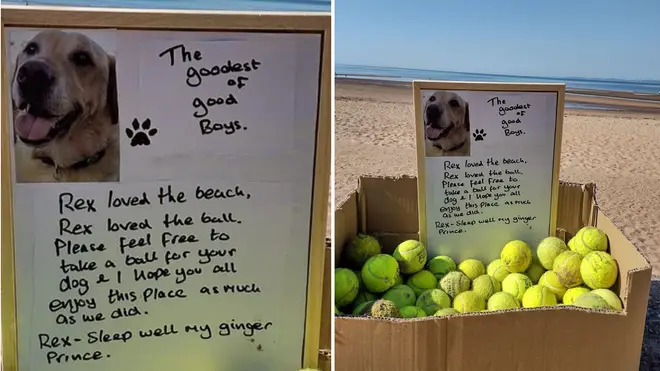 The
goodest
of
good
Boys.
Rex loved the beach,
Rex loved the ball.
Please feel free to
take a ball for your
dog & I hope you all
enjoy this place as much
as we did.
Rex - Sleep well my ginger
Prince.
The
goodest
of
good
Boys.
Rex loved the beach,
Rex loved the ball.
Please feel free to
take a ball for your
dog & I hope you all
enjoy this place as much
as we did.
Rex - Sleep well my ginger
Prince.